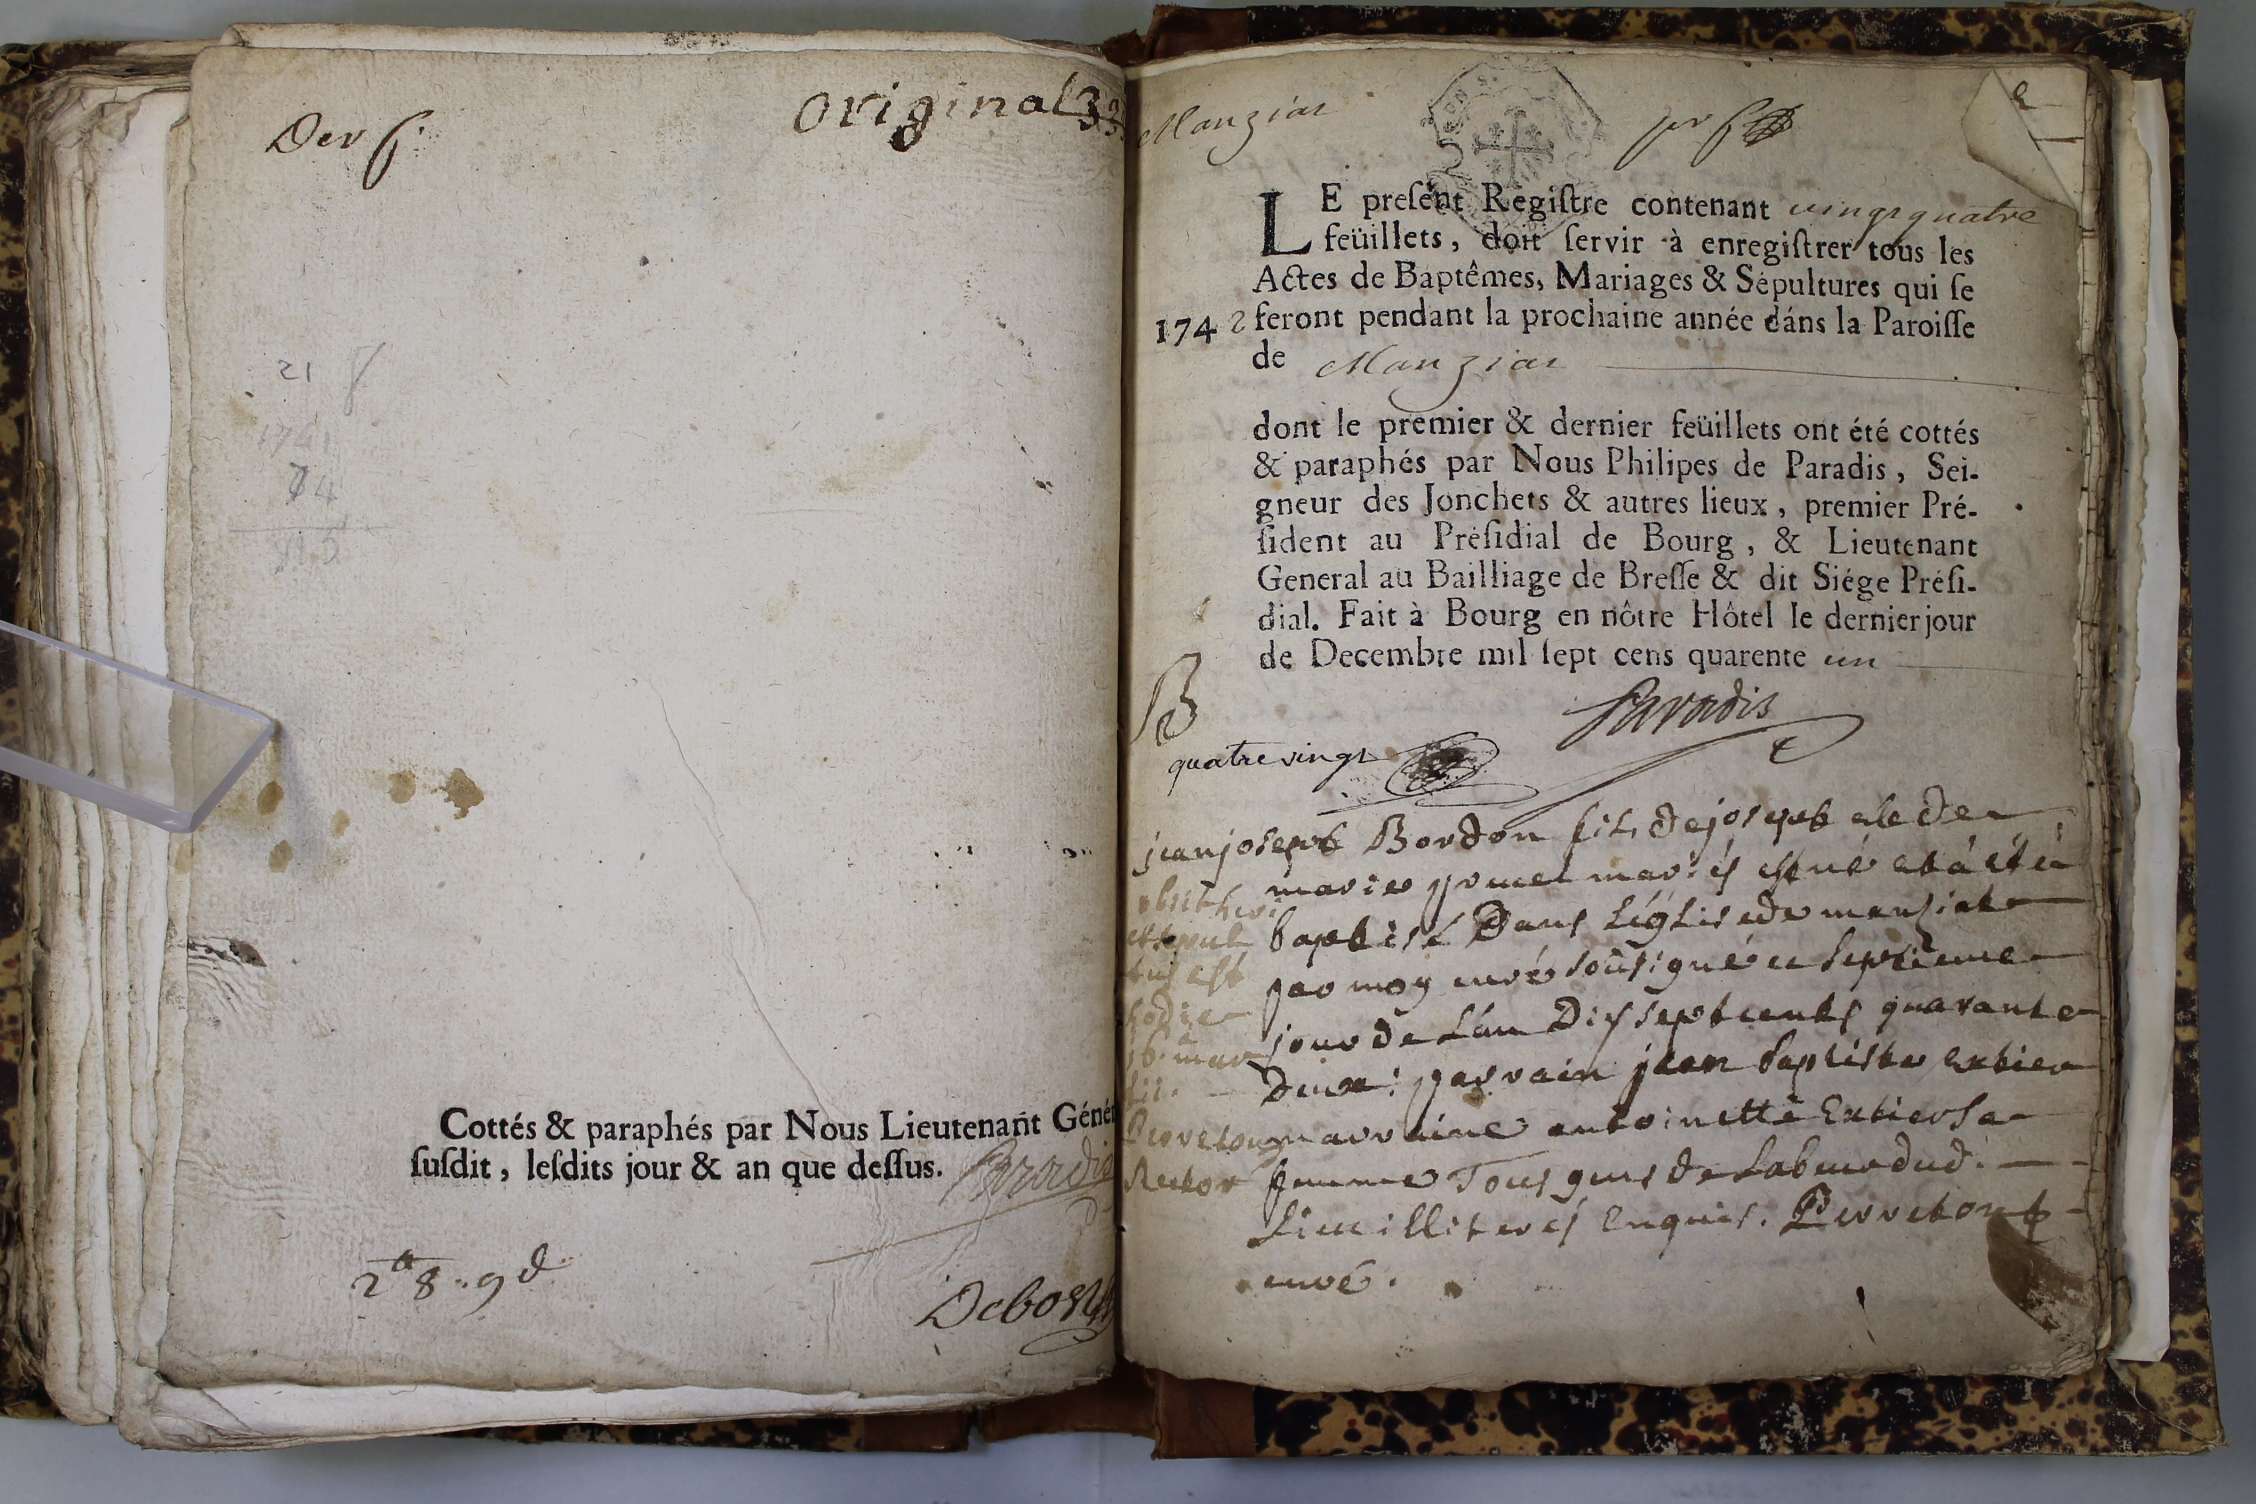 Original
Der f.
21
1741
74
Cottés & paraphés par Nous Lieutenant Génér
suſdit, leſdits jour & an que deſſus.
Paradis
2 8..9 d
Manziat
LE preſent Regiſtre contenant vingt quatre
feüillets, doit ſervir à enregiſtrer tous les
Actes de Baptêmes, Mariages & Sépultures qui ſe
1742 feront pendant la prochaine année dans la Paroiſſe
de Manziat
dont le premier & dernier feüillets ont été cottés
& paraphés par Nous Philipes de Paradis, Sei-
gneur des Jonchets & autres lieux, premier Pré-
ſident au Préſidial de Bourg, & Lieutenant
General au Bailliage de Breſſe & dit Siége Préſi-
dial. Fait à Bourg en nôtre Hôtel le dernier jour
de Decembre mil ſept cens quarente un
Paradis
B
quatre vingt
jean joseph Bordon fils de joseph et de
marie mariés est né et à été
baptisé Dans L'église de manziat
par moy curé soûsigné ce septieme
jour de L'an Dix sept cents quarante
Deux: parrain jean baptiste Extier
marraine antoinette Extier sa
femme Tous gens de Labeur dud.
Lieu illiterés Enquis. Perreton
curé.
obiit heri
et sepul
tus est
hodie
Perreton
Rector